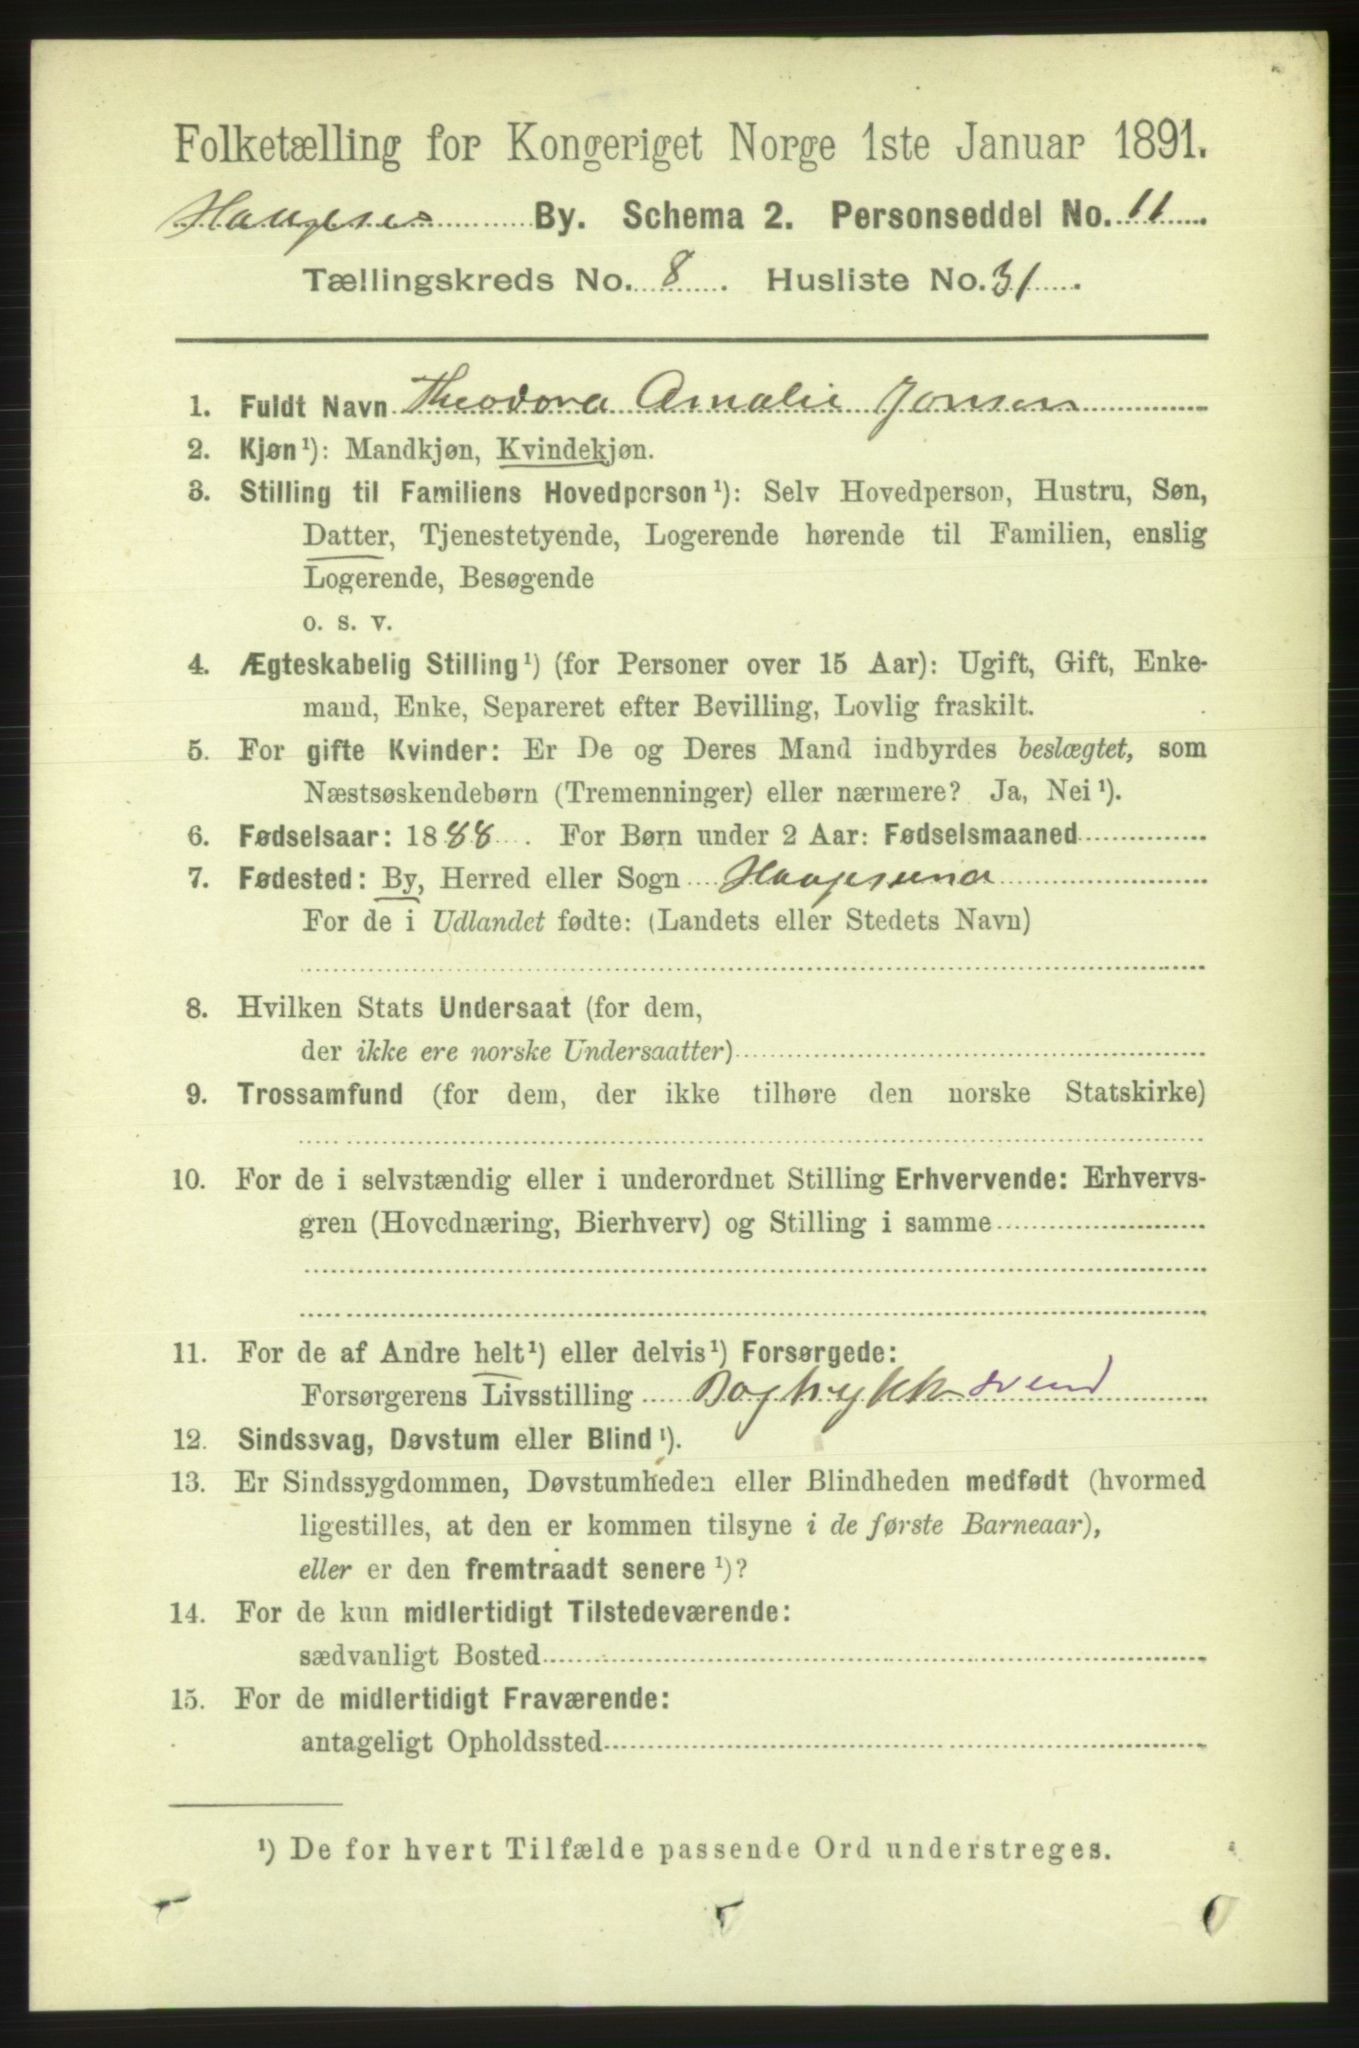 Folketælling for Kongeriget Norge 1ste Januar 1891.
By. Schema 2. Personseddel No. 11
Tællingskreds No. 8. Husliste No. 31.
1. Fuldt Navn Theodora Amalie Jonsen
2. Kjøn¹): Mandkjøn, Kvindekjøn.
3. Stilling til Familiens Hovedperson¹): Selv Hovedperson, Hustru, Søn,
Datter, Tjenestetyende, Logerende hørende til Familien, enslig
Logerende, Besøgende
o. s. v.
4. Ægteskabelig Stilling¹) (for Personer over 15 Aar): Ugift, Gift, Enke-
mand, Enke, Separeret efter Bevilling, Lovlig fraskilt.
5. For gifte Kvinder: Er De og Deres Mand indbyrdes beslægtet, som
Næstsøskendebørn (Tremenninger) eller nærmere? Ja, Nei¹).
6. Fødselsaar: 1888. For Børn under 2 Aar: Fødselsmaaned
7. Fødested: By, Herred eller Sogn Haugesund
For de i Udlandet fødte: (Landets eller Stedets Navn)
8. Hvilken Stats Undersaat (for dem,
der ikke ere norske Undersaatter)
9. Trossamfund (for dem, der ikke tilhøre den norske Statskirke)
10. For de i selvstændig eller i underordnet Stilling Erhvervende: Erhvervs-
gren (Hovednæring, Bierhverv) og Stilling i samme
11. For de af Andre helt¹) eller delvis¹) Forsørgede:
Forsørgerens Livsstilling Bogtrykksvend
12. Sindssvag, Døvstum eller Blind¹).
13. Er Sindssygdommen, Døvstumheden eller Blindheden medfødt (hvormed
ligestilles, at den er kommen tilsyne i de første Barneaar),
eller er den fremtraadt senere¹)?
14. For de kun midlertidigt Tilstedeværende:
sædvanligt Bosted
15. For de midlertidigt Fraværende:
antageligt Opholdssted
¹) De for hvert Tilfælde passende Ord understreges.